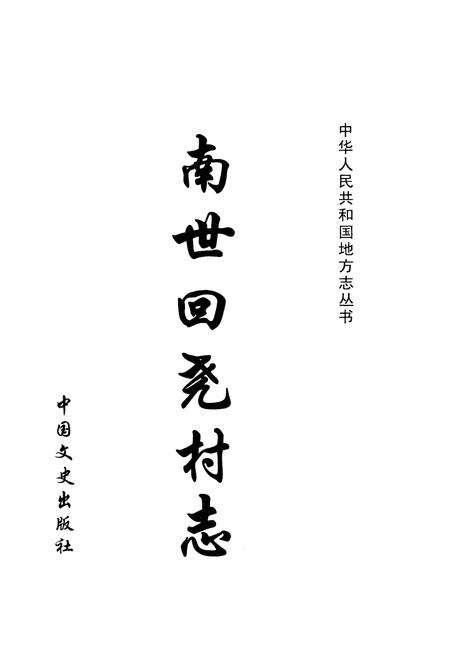 中华人民共和国地方志丛书
南世回尧村志
中国文史出版社